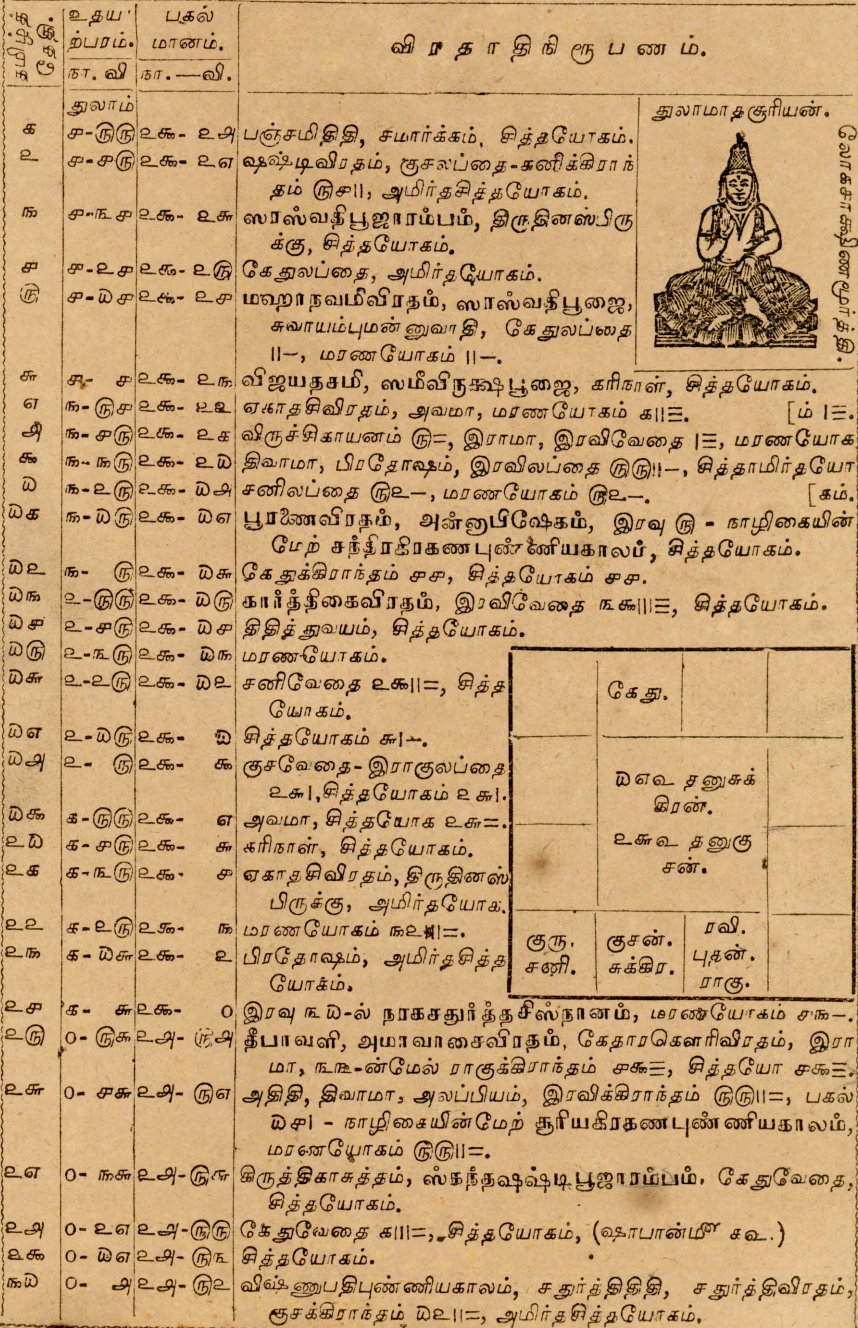 உதய பகல்
ற்பரம். மானம். விரதாதிநிரூபணம்.
நா. வி நா.—வி.
துலாம் துலாமாதசூரியன்.
லோகசாக்ஷிணேமூர்த்தி.
௧ ௪-௫௫ ௨௯- ௨௮ பஞ்சமிதிதி, சமார்க்கம், சித்தயோகம்.
௨ ௪-௪௫ ௨௯- ௨௭ ஷஷ்டிவிரதம், குசலப்தை-சனிக்கிராந்
தம் ௫௪||, அமிர்தசித்தயோகம்.
௩ ௪-௩௪ ௨௯- ௨௬ ஸரஸ்வதிபூஜாரம்பம், திருதினஸ்பிரு
க்கு, சித்தயோகம்.
௪ ௪-௨௪ ௨௯- ௨௫ கேதுலப்தை, அமிர்தயோகம்.
௫ ௪-௰௪ ௨௯- ௨௪ மஹாநவமீவிரதம், ஸரஸ்வதிபூஜை,
சுவாயம்புமன்னுவாதி, கேதுலப்தை
||–, மரணயோகம் ||–.
௬ ௪- ௪ ௨௯- ௨௩ விஜயதசமி, ஸமீவிருக்ஷபூஜை, கரிநாள், சித்தயோகம்.
௭ ௩-௫௪ ௨௯- ௨௨ ஏகாதசிவிரதம், அவமா, மரணயோகம் ௧||☰. [ம் |☰.
௮ ௩-௪௫ ௨௯- ௨௧ விருச்சிகாயனம் ௫=, இராமா, இரவிவேதை |☰, மரணயோக
௯ ௩-௩௫ ௨௯- ௨௰ திவாமா, பிரதோஷம், இரவிலப்தை ௫௫||–, சித்தாமிர்தயோ
௰ ௩-௨௫ ௨௯- ௰௮ சனிலப்தை ௫௨–, மரணயோகம் ௫௨–. [கம்.
௰௧ ௩-௰௫ ௨௯- ௰௭ பூரணைவிரதம், அன்னாபிஷேகம், இரவு ௫ - நாழிகையின்
மேற் சந்திரகிரகணபுண்ணியகாலம், சித்தயோகம்.
௰௨ ௩- ௫ ௨௯- ௰௬ கேதுக்கிராந்தம் ௪௪, சித்தயோகம் ௪௪.
௰௩ ௨-௫௫ ௨௯- ௰௫ கார்த்திகைவிரதம், இரவிவேதை ௩௯|||☰, சித்தயோகம்.
௰௪ ௨-௪௫ ௨௯- ௰௪ திதித்துவயம், சித்தயோகம்.
௰௫ ௨-௩௫ ௨௯- ௰௩ மரணயோகம்.
௰௬ ௨-௨௫ ௨௯- ௰௨ சனிவேதை ௨௯||=, சித்த
யோகம்.
௰௭ ௨-௰௫ ௨௯- ௰ சித்தயோகம் ௬|–.
௰௮ ௨- ௫ ௨௯- ௯ குசவேதை-இராகுலப்தை
௨௬|, சித்தயோகம் ௨௬|.
௰௯ ௧-௫௫ ௨௯- ௭ அவமா, சித்தயோக ௨௬=.
௨௰ ௧-௪௫ ௨௯- ௬ கரிநாள், சித்தயோகம்.
௨௧ ௧-௩௫ ௨௯- ௪ ஏகாதசிவிரதம், திருதினஸ்
பிருக்கு, அமிர்தயோக.
௨௨ ௧-௨௫ ௨௯- ௩ மரணயோகம்
௨௩ ௧-௰௬ ௨௯- ௨ பிரதோஷம், அமிர்தசித்த
யோகம்.
கேது.
௰௭௳ தனுசுக்
கிரன்.
௨௬௳ தனுகு
சன்.
குரு. சனி.
குசன். சுக்கிர.
ரவி. புதன். ராகு.
௨௪ ௧- ௬ ௨௯- ௦ இரவு ௩௰-ல் நரகசதுர்த்தசிஸ்நானம், மரணயோகம் ௪௩–.
௨௫ ௦- ௫௬ ௨௮- ௫௮ தீபாவளி, அமாவாசைவிரதம், கேதாரகௌரிவிரதம், இரா
மா, ௩௩-ன்மேல் ராகுக்கிராந்தம் ௪௯☰, சித்தயோ ௪௯☰.
௨௬ ௦- ௪௬ ௨௮- ௫௭ அதிதி, திவாமா, அலப்பியம், இரவிக்கிராந்தம் ௫௫||=, பகல்
௰௪| - நாழிகையின்மேற் சூரியகிரதணபுண்ணியகாலம்,
மரணயோகம் ௫௫||=.
௨௭ ௦- ௩௬ ௨௮- ௫௬ கிருத்திகாசுத்தம், ஸ்கந்தஷஷ்டிபூஜாரம்பம், கேதுவேதை,
சித்தயோகம்.
௨௮ ௦- ௨௭ ௨௮- ௫௫ கேதுவேதை ௧|||=, சித்தயோகம், (ஷாபான்மீ ௴ ௧௳.)
௨௯ ௦- ௰௭ ௨௮- ௫௩ சித்தயோகம்.
௩௰ ௦- ௮ ௨௮- ௫௨ விஷ்ணுபதிபுண்ணியகாலம், சதுர்த்திதிதி, சதுர்த்திவிரதம்,
குசக்கிராந்தம் ௰௨||=, அமிர்தசித்தயோகம்.